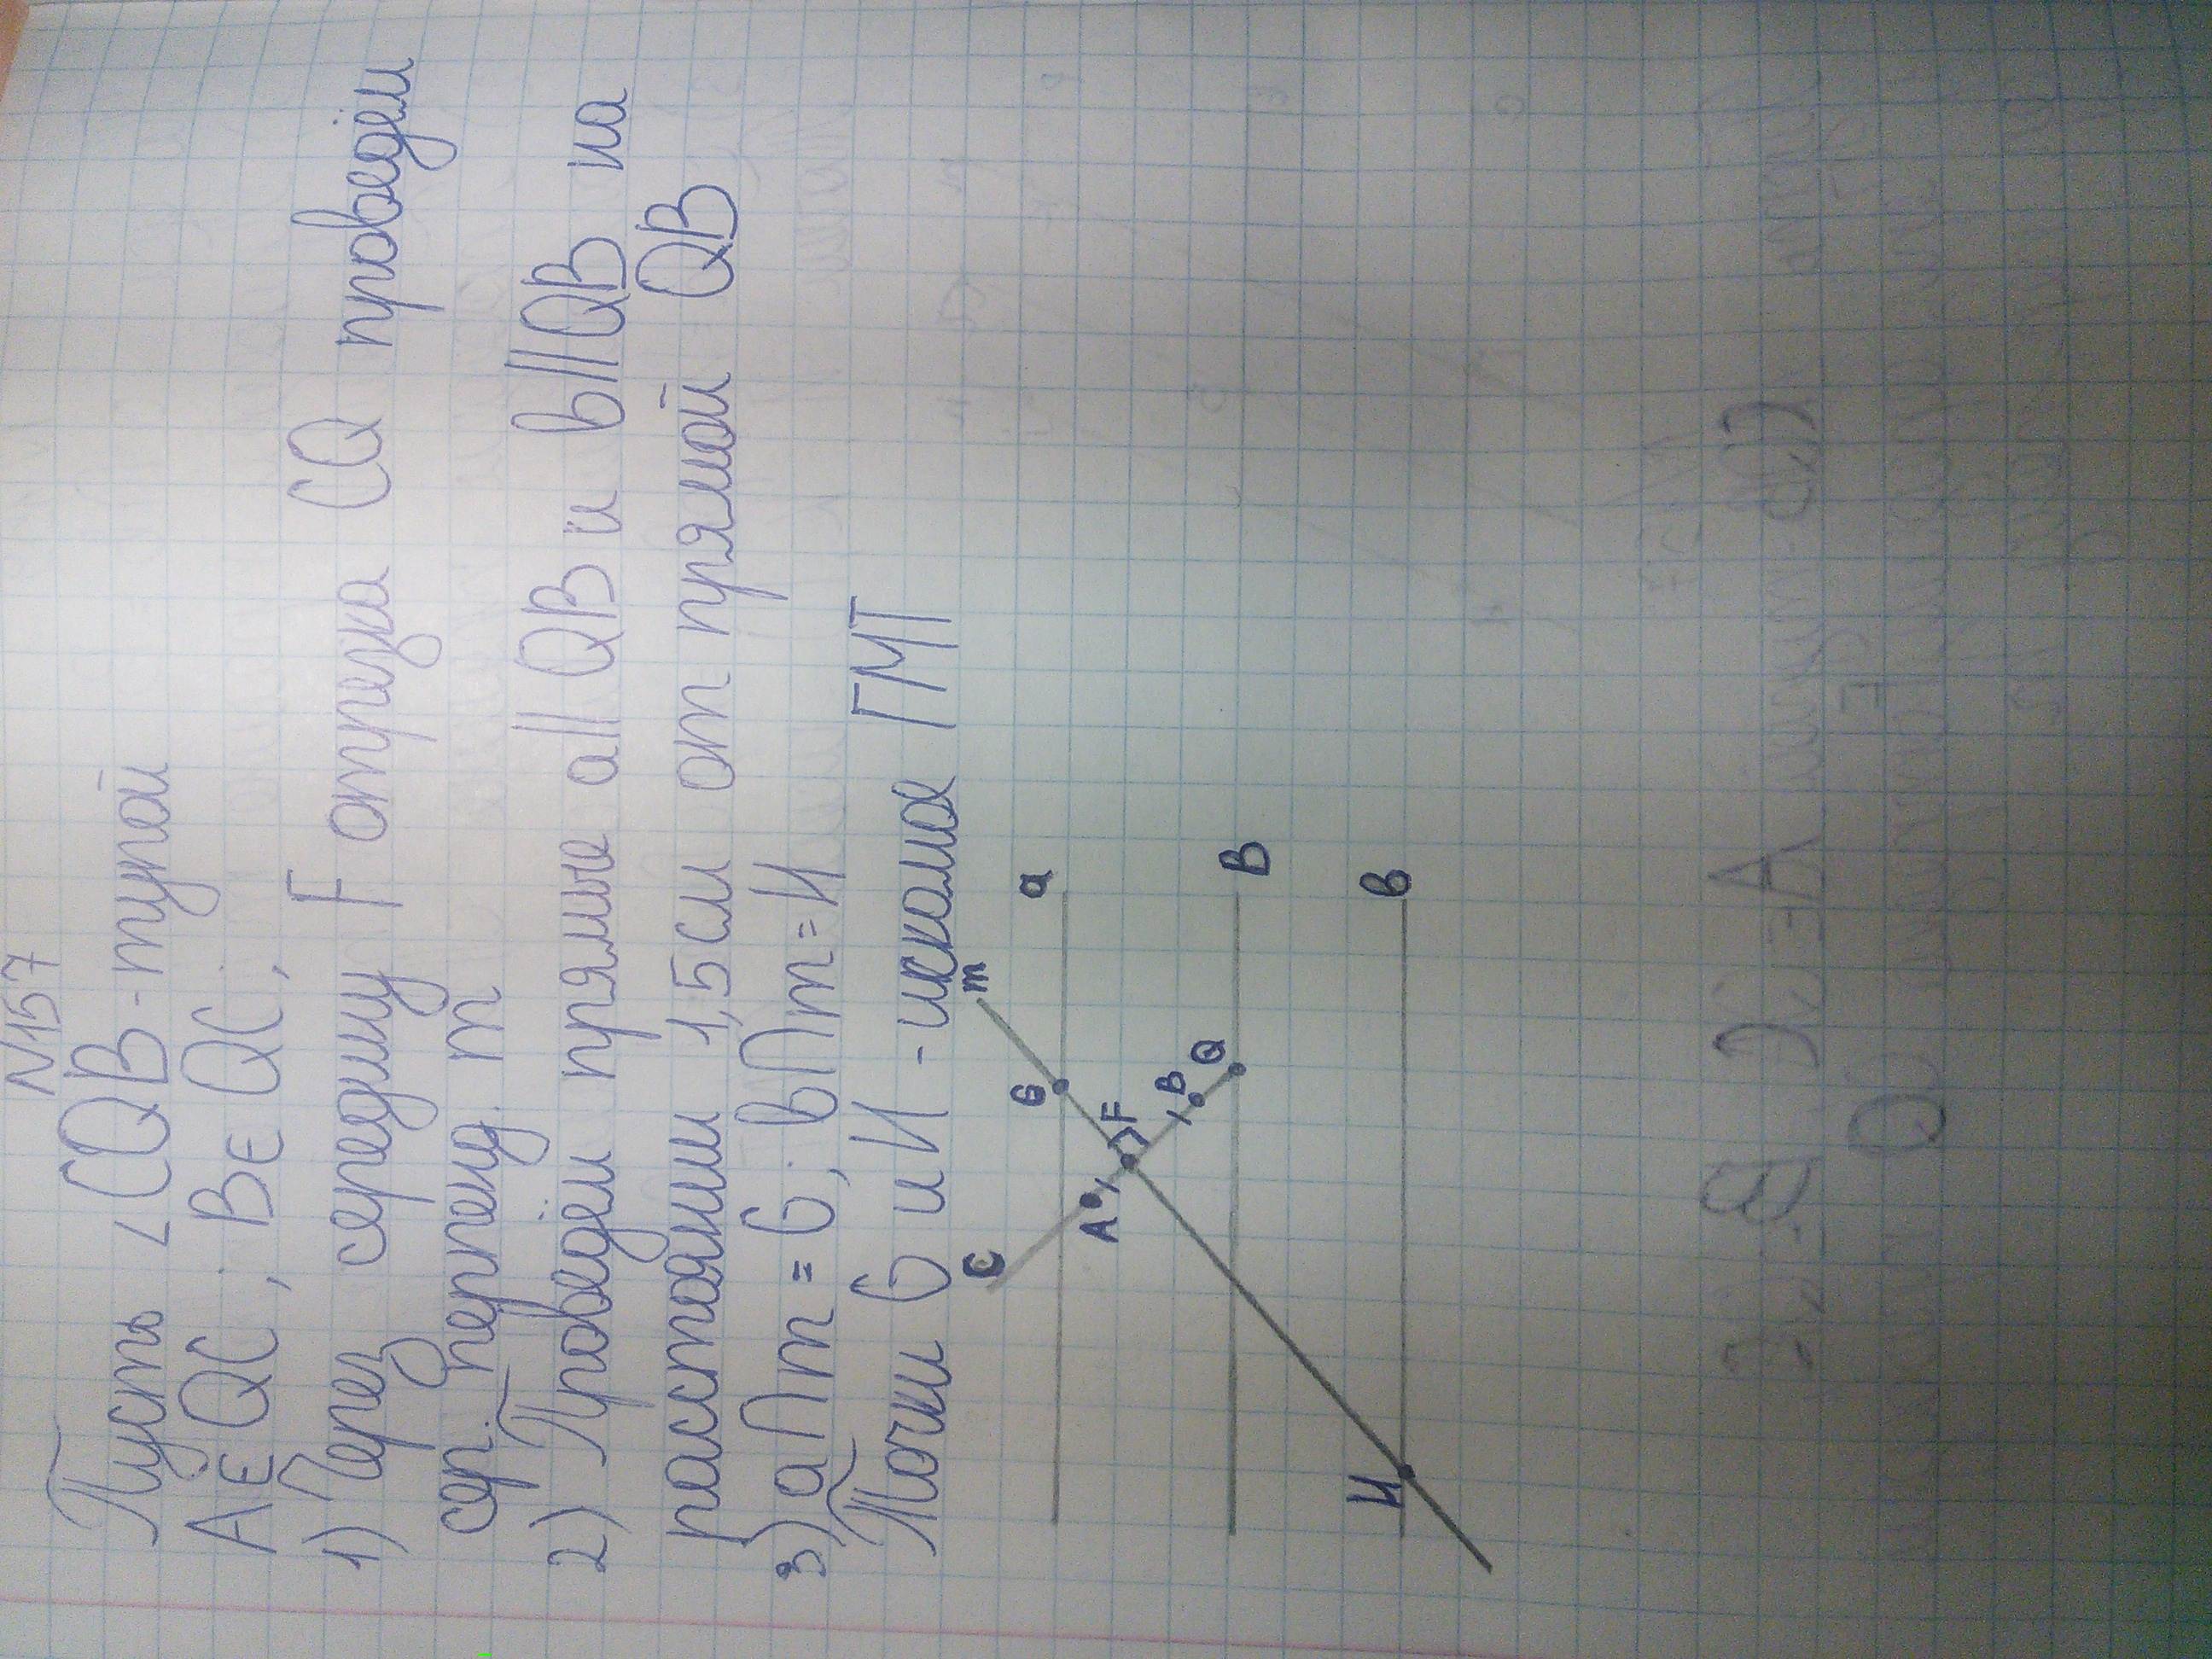 N157
Пусть ∠CQB - тупой
A∈QC; B∈QC;
1) Через середину F отрезка CQ проведём
сер. перпенд. m
2) Проведём прямые a||QB и в||QB на
расстоянии 1,5см от прямой QB
3) a∩m = G; в∩m = И
Точки G и И - искомое ГМТ
m
a
G
C
A
F
B
Q
B
И
в